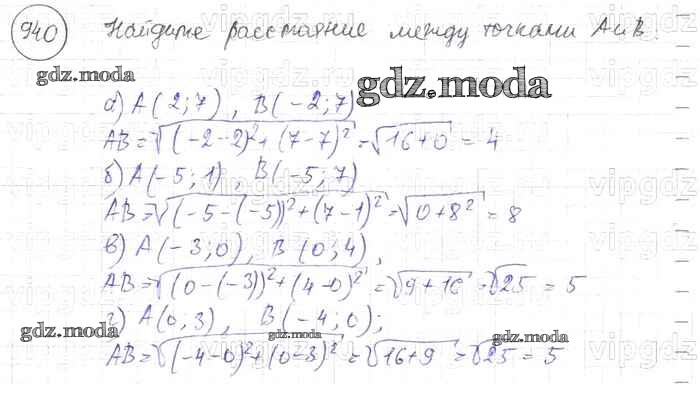 940 Найдите расстояние между точками А и В.
gdz.moda
gdz.moda
а) A(2;7), B(-2;7)
AB = √((-2-2)²+(7-7)²) = √16+0 = 4
б) A(-5;1), B(-5;7)
AB = √((-5-(-5))²+(7-1)²) = √0+8² = 8
в) A(-3;0), B(0;4),
AB = √((0-(-3))²+(4-0)²) = √9+16 = √25 = 5
г) A(0;3), B(-4;0);
gdz.moda
gdz.moda
gdz.moda
AB = √((-4-0)²+(0-3)²) = √16+9 = √25 = 5
vipgdz